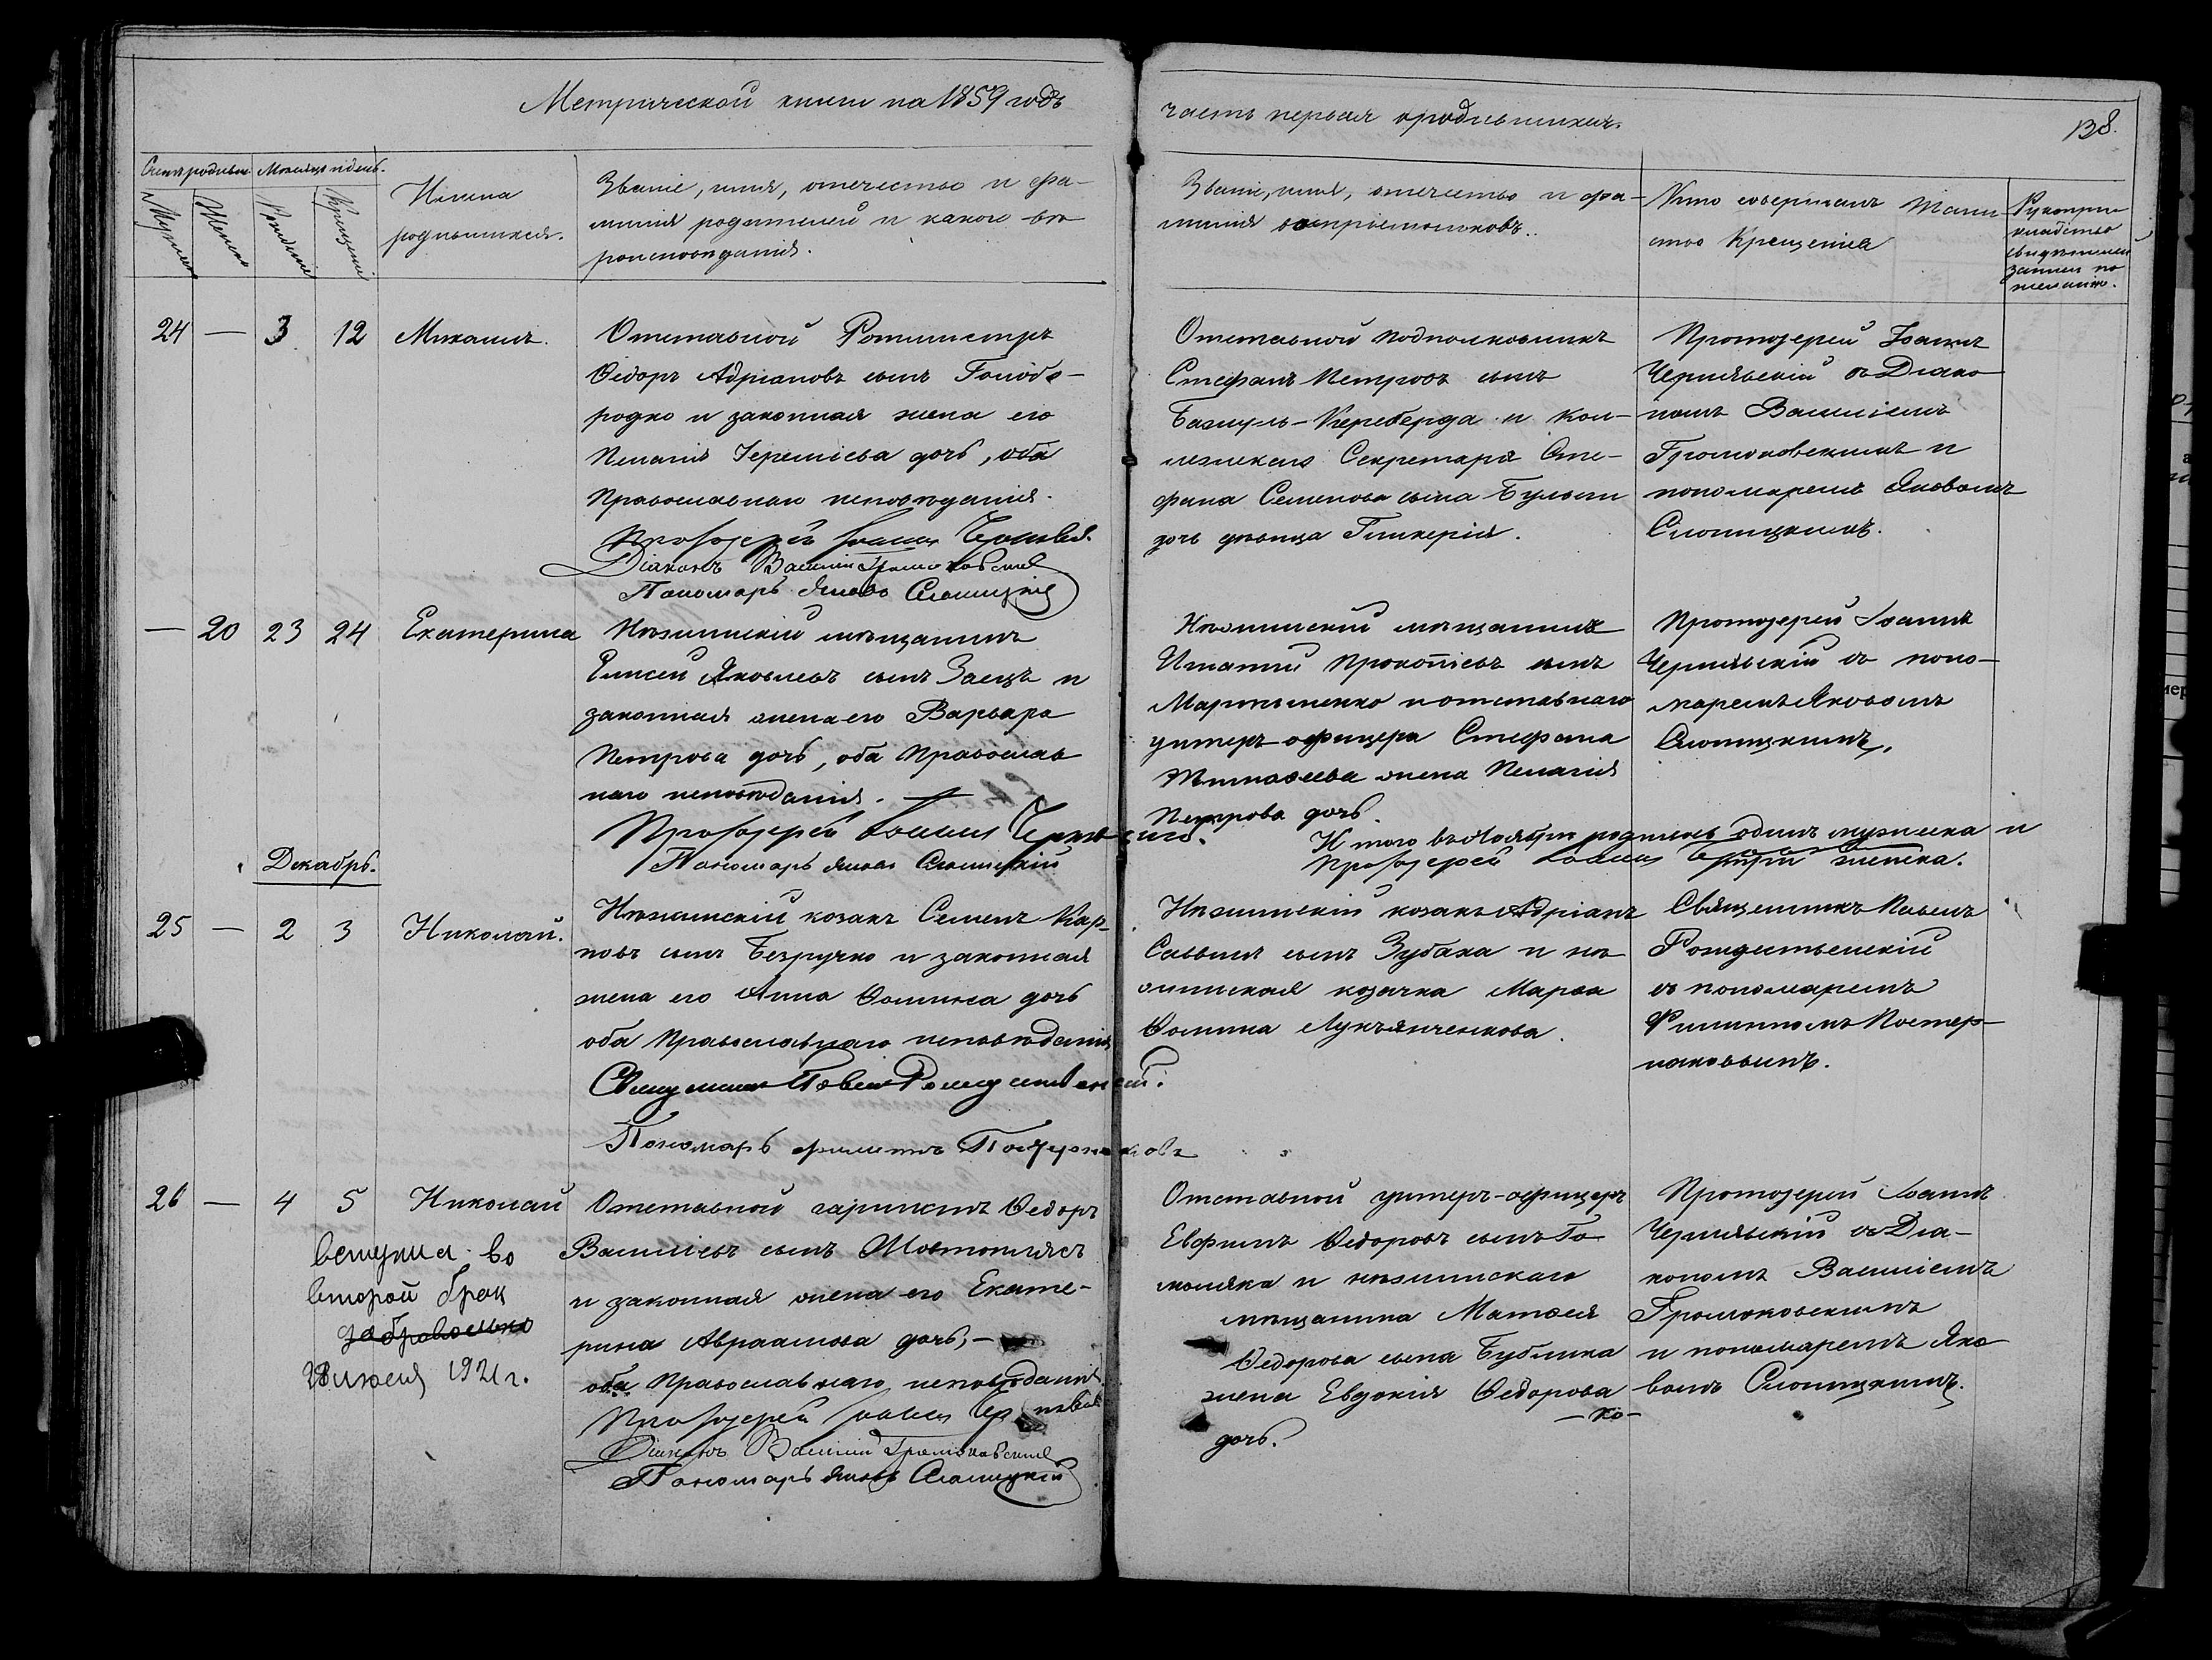 Метрической книги на 1859 годъ
часть первая о родившихся.
138.
Счетъ родивш.
Мѣсяцъ и день.
Мужеска
Женска
Рожденія
Крещенія
Имена
родившихся.
Званіе, имя, отечество и фа-
милія родителей и какого вѣ-
роисповѣданія.
Званіе, имя, отечество и фа-
милія воспріемниковъ.
Кто совершалъ таин-
ство Крещенія
Рукопри-
кладство
свидѣтелей
записи по
желанію.
24 — 3 12 Михаилъ.
Отставной Ротмистръ
Ѳедоръ Адріановъ сынъ Голобо-
родко и законная жена его
Пелагія Іереміева дочь, оба
Православнаго исповѣданія.
Протоіерей Іоаннъ Чернявскій.
Діаконъ Василій Громоковскій
Пономарь Яковъ Слоницкій
Отставной подполковникъ
Стефанъ Петровъ сынъ
Базиуль-Кереберда и Кол-
лежскаго Секретаря Сте-
фана Семенова сына
дочь дѣвица Гликерія.
Протоіерей Іоаннъ
Чернявскій съ Діако-
номъ Василіемъ
Громоковскимъ и
пономаремъ Яковомъ
Слоницкимъ.
— 20 23 24 Екатерина
Нѣжинскій мѣщанинъ
Елисей Яковлевъ сынъ Заецъ и
законная жена его Варвара
Петрова дочь, оба Православ
наго исповѣданія.
Протоіерей Іоаннъ Чернявскій.
Пономарь Яковъ Слоницкій
Нѣжинскій мѣщанинъ
Игнатій Прокопіевъ сынъ
Мартыненко и отставнаго
унтеръ-офицера Стефана
Тимоѳеева жена Пелагія
Петрова дочь.
Протоіерей Іоаннъ
Чернявскій съ поно-
маремъ Яковомъ
Слоницкимъ.
Итого въ Ноябрѣ родилось одинъ мужеска и
Протоіерей Іоаннъ женска.
Декабрь.
25 — 2 3 Николай.
Нѣжинскій козакъ Семенъ Кар-
повъ сынъ Безручко и законная
жена его Анна Ѳомина дочь
оба Православнаго исповѣданія
Священникъ Павелъ Рождественскій.
Пономарь Филиппъ Постернаковъ
Нѣжинскій козакъ Адріанъ
Саввинъ сынъ Зубака и нѣ
жинская козачка Марѳа
Ѳомина Лукъянченкова.
Священникъ Павелъ
Рождественскій
съ пономаремъ
Филиппомъ Постер-
наковымъ.
26 — 4 5 Николай
вступил во
второй брак
28 1921 г.
Отставной Ѳедоръ
Василіевъ сынъ
и законная жена его Екате-
рина Авраамова дочь, —
оба Православнаго исповѣданія.
Протоіерей Іоаннъ Чернявскій
Діаконъ Василій Громоковскій
Пономарь Яковъ Слоницкій
Отставной унтеръ-офицеръ
Евфимъ Ѳедоровъ сынъ Го-
моляка и нѣжинскаго
мѣщанина Матѳея
Ѳедорова сына Бублика
жена Евдокія Ѳедорова
дочь.
Протоіерей Іоаннъ
Чернявскій съ Діа-
кономъ Василіемъ
Громоковскимъ
и пономаремъ Яко
вомъ Слоницкимъ.